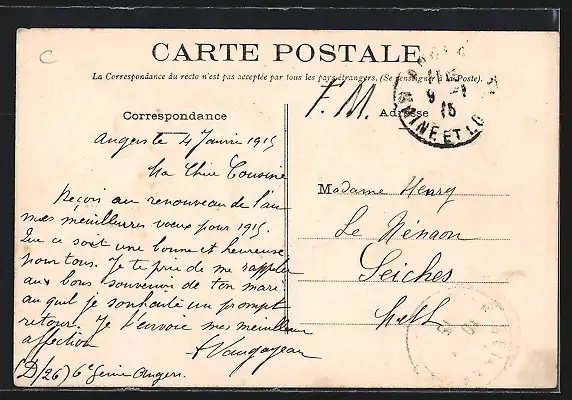 C
CARTE POSTALE
La Correspondance du recto n'est pas acceptée par tous les pays étrangers. (Se renseigner à la Poste).
F. M.
9 - 1
15
MAINE ET LO
Correspondance
Adresse
Angers le 4 Janvier 1915
Ma Chère Cousine
Reçois au renouveau de l'an
mes meuilleures voeux pour 1915.
Que ce soit une bonne et heureuse
pour tous. Je te prie de me rappeler
aux bons souvenirs de ton mari
au quil je souhaite un prompt
retour. Je t'envoie mes meuilleur
affection
(D/26) 6e Genie Angers.
Madame Henry
Le
Seiches
M et L